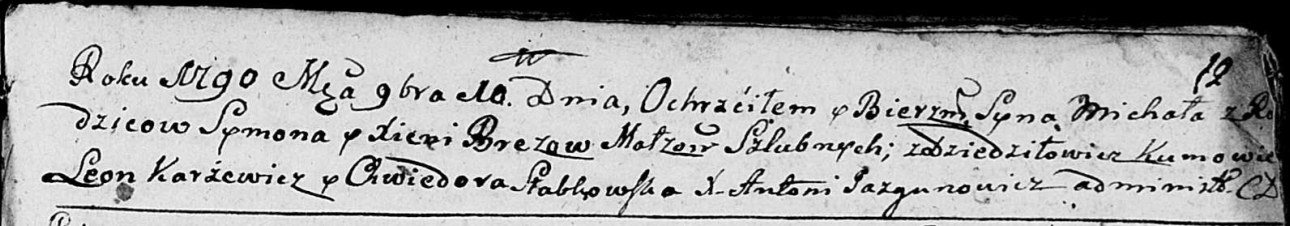 12
Roku 1790 Mca 9bra 10. Dnia, Ochrzciłem y Bierzm: Syna Michała z Ro
dzicow Symona y Xieni Brezow Małżow Szlubnych; zdziedziłowicz Kumowie
Leon Karżewicz y Chwiedora Słabkowska X. Antoni Jazgunowicz administr. CD